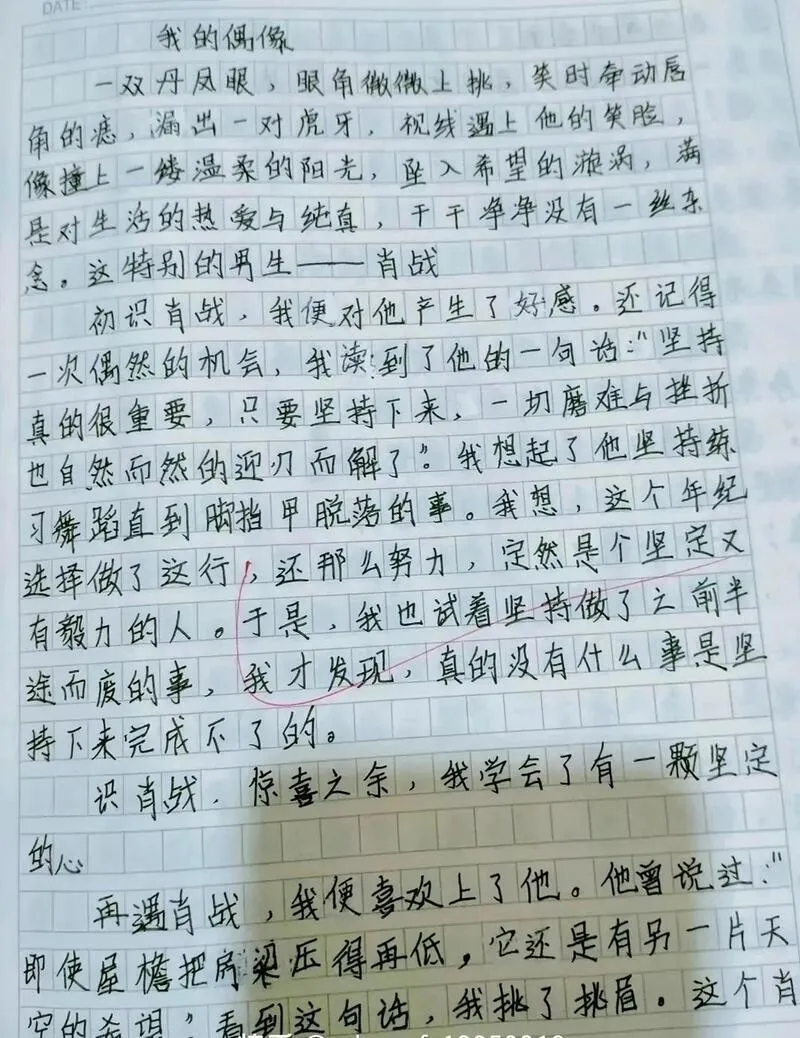 DATE:
我的偶像
一双丹凤眼，眼角微微上挑，笑时牵动唇
角的痣，漏出一对虎牙，视线遇上他的笑脸，
像撞上一缕温柔的阳光，坠入希望的漩涡，满
是对生活的热爱与纯真，干干净净没有一丝杂
念。这特别的男生——肖战
初识肖战，我便对他产生了好感。还记得
一次偶然的机会，我读到了他的一句话：“坚持
真的很重要，只要坚持下来，一切磨难与挫折
也自然而然的迎刃而解了”。我想起了他坚持练
习舞蹈直到脚指甲脱落的事。我想，这个年纪
选择做了这行，还那么努力，定然是个坚定又
有毅力的人。于是，我也试着坚持做了之前半
途而度的事，我才发现，真的没有什么事是坚
持下来完成不了的。
识肖战，惊喜之余，我学会了有一颗坚定
的心
再遇肖战，我便喜欢上了他。他曾说过：“
即使屋檐把房梁压得再低，它还是有另一片天
空的希望”看到这句话，我挑了挑眉。这个肖